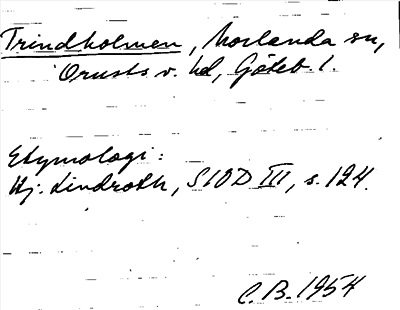 Trindholmen, Morlanda sn,
Orusts v. hd, Göteb. l.
Etymologi:
Hj. Lindroth, SIOD III, s. 124.
C. B. 1954